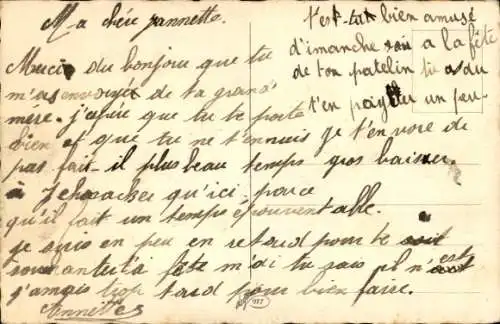 Ma chère jannette.
Merci du bonjour que tu
m'as envoyée de ta grand
mere. j'espère que tu te porte
bien et que tu ne t'ennuis
pas fait-il plus beau temps
à qu'ici, parce
qu'il fait un temps épouventable.
je suis en peu en retard pour te
souhantut'a fête m'di tu sais il n'est
jamais trop tard pour bien faire.
t'est-tu bien amusé
d'imanche a la fête
de ton patelin tu as du
t'en payer un peu
je t'envore de
gros baiser.